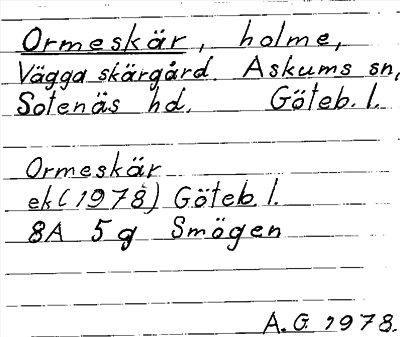 Ormeskär, holme,
Vägga skärgård. Askums sn,
Sotenäs hd. Göteb. l.
Ormeskär
ek (1978) Göteb. l.
8A 5g Smögen
A.G. 1978.